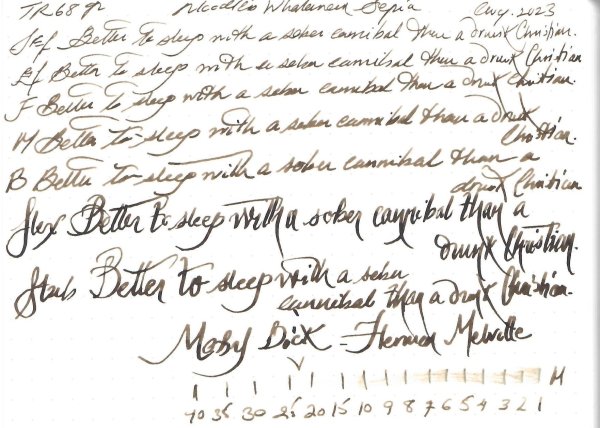 TR68gr Noodler's Whaleman's Sepia Aug. 2023
Jef Better to sleep with a sober cannibal than a drunk Christian.
Ef Better to sleep with a sober cannibal than a drunk Christian
F Better to sleep with a sober cannibal than a drunk Christian.
M Better to sleep with a sober cannibal than a drunk
Christian.
B Better to sleep with a sober cannibal than a
drunk Christian
flex Better to sleep with a sober cannibal than a
drunk Christian.
Stub Better to sleep with a sober
cannibal than a drunk Christian.
Moby Dick - Herman Melville
M
40 35 30 25 20 15 10 9 8 7 6 5 4 3 2 1